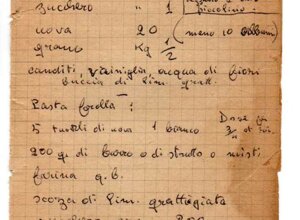 zucchero " 1
piccolino.
uova 20 (meno 10 albumi)
grano Kg 1/2
canditi, vainiglia, acqua di fiori
buccia di lim. gratt.
Pasta frolla:
5 tuorli di uova 1 bianco
Dose
200 g. di burro o di strutto o misti
farina q.b.
scorza di lim. grattugiata